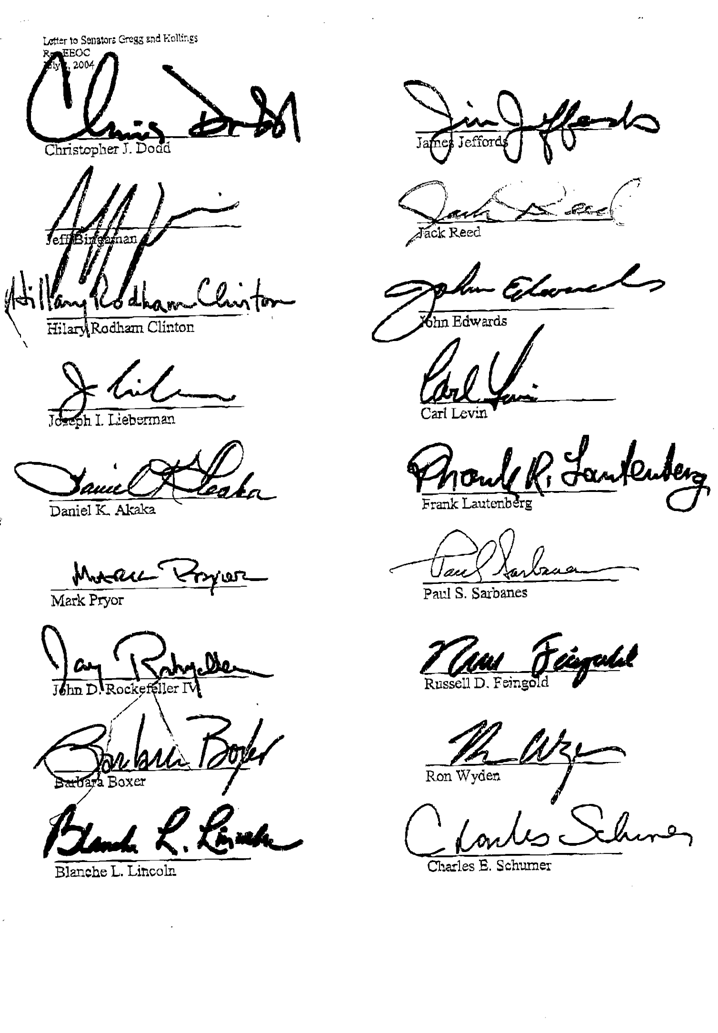 Letter to Senators Gregg and Hollings
Re: EEOC
2004
Chris Dodd
Christopher J. Dodd
Jim Jeffords
James Jeffords
Jeff Bingaman
Jack Reed
Jack Reed
Hillary Rodham Clinton
Hilary Rodham Clinton
John Edwards
John Edwards
Joseph I. Lieberman
Carl Levin
Carl Levin
Daniel K. Akaka
Daniel K. Akaka
Frank R. Lautenberg
Frank Lautenberg
Mark Pryor
Mark Pryor
Paul Sarbanes
Paul S. Sarbanes
Jay Rockefeller
John D. Rockefeller IV
Russ Feingold
Russell D. Feingold
Barbara Boxer
Barbara Boxer
Ron Wyden
Ron Wyden
Blanche L. Lincoln
Blanche L. Lincoln
Charles Schumer
Charles E. Schumer